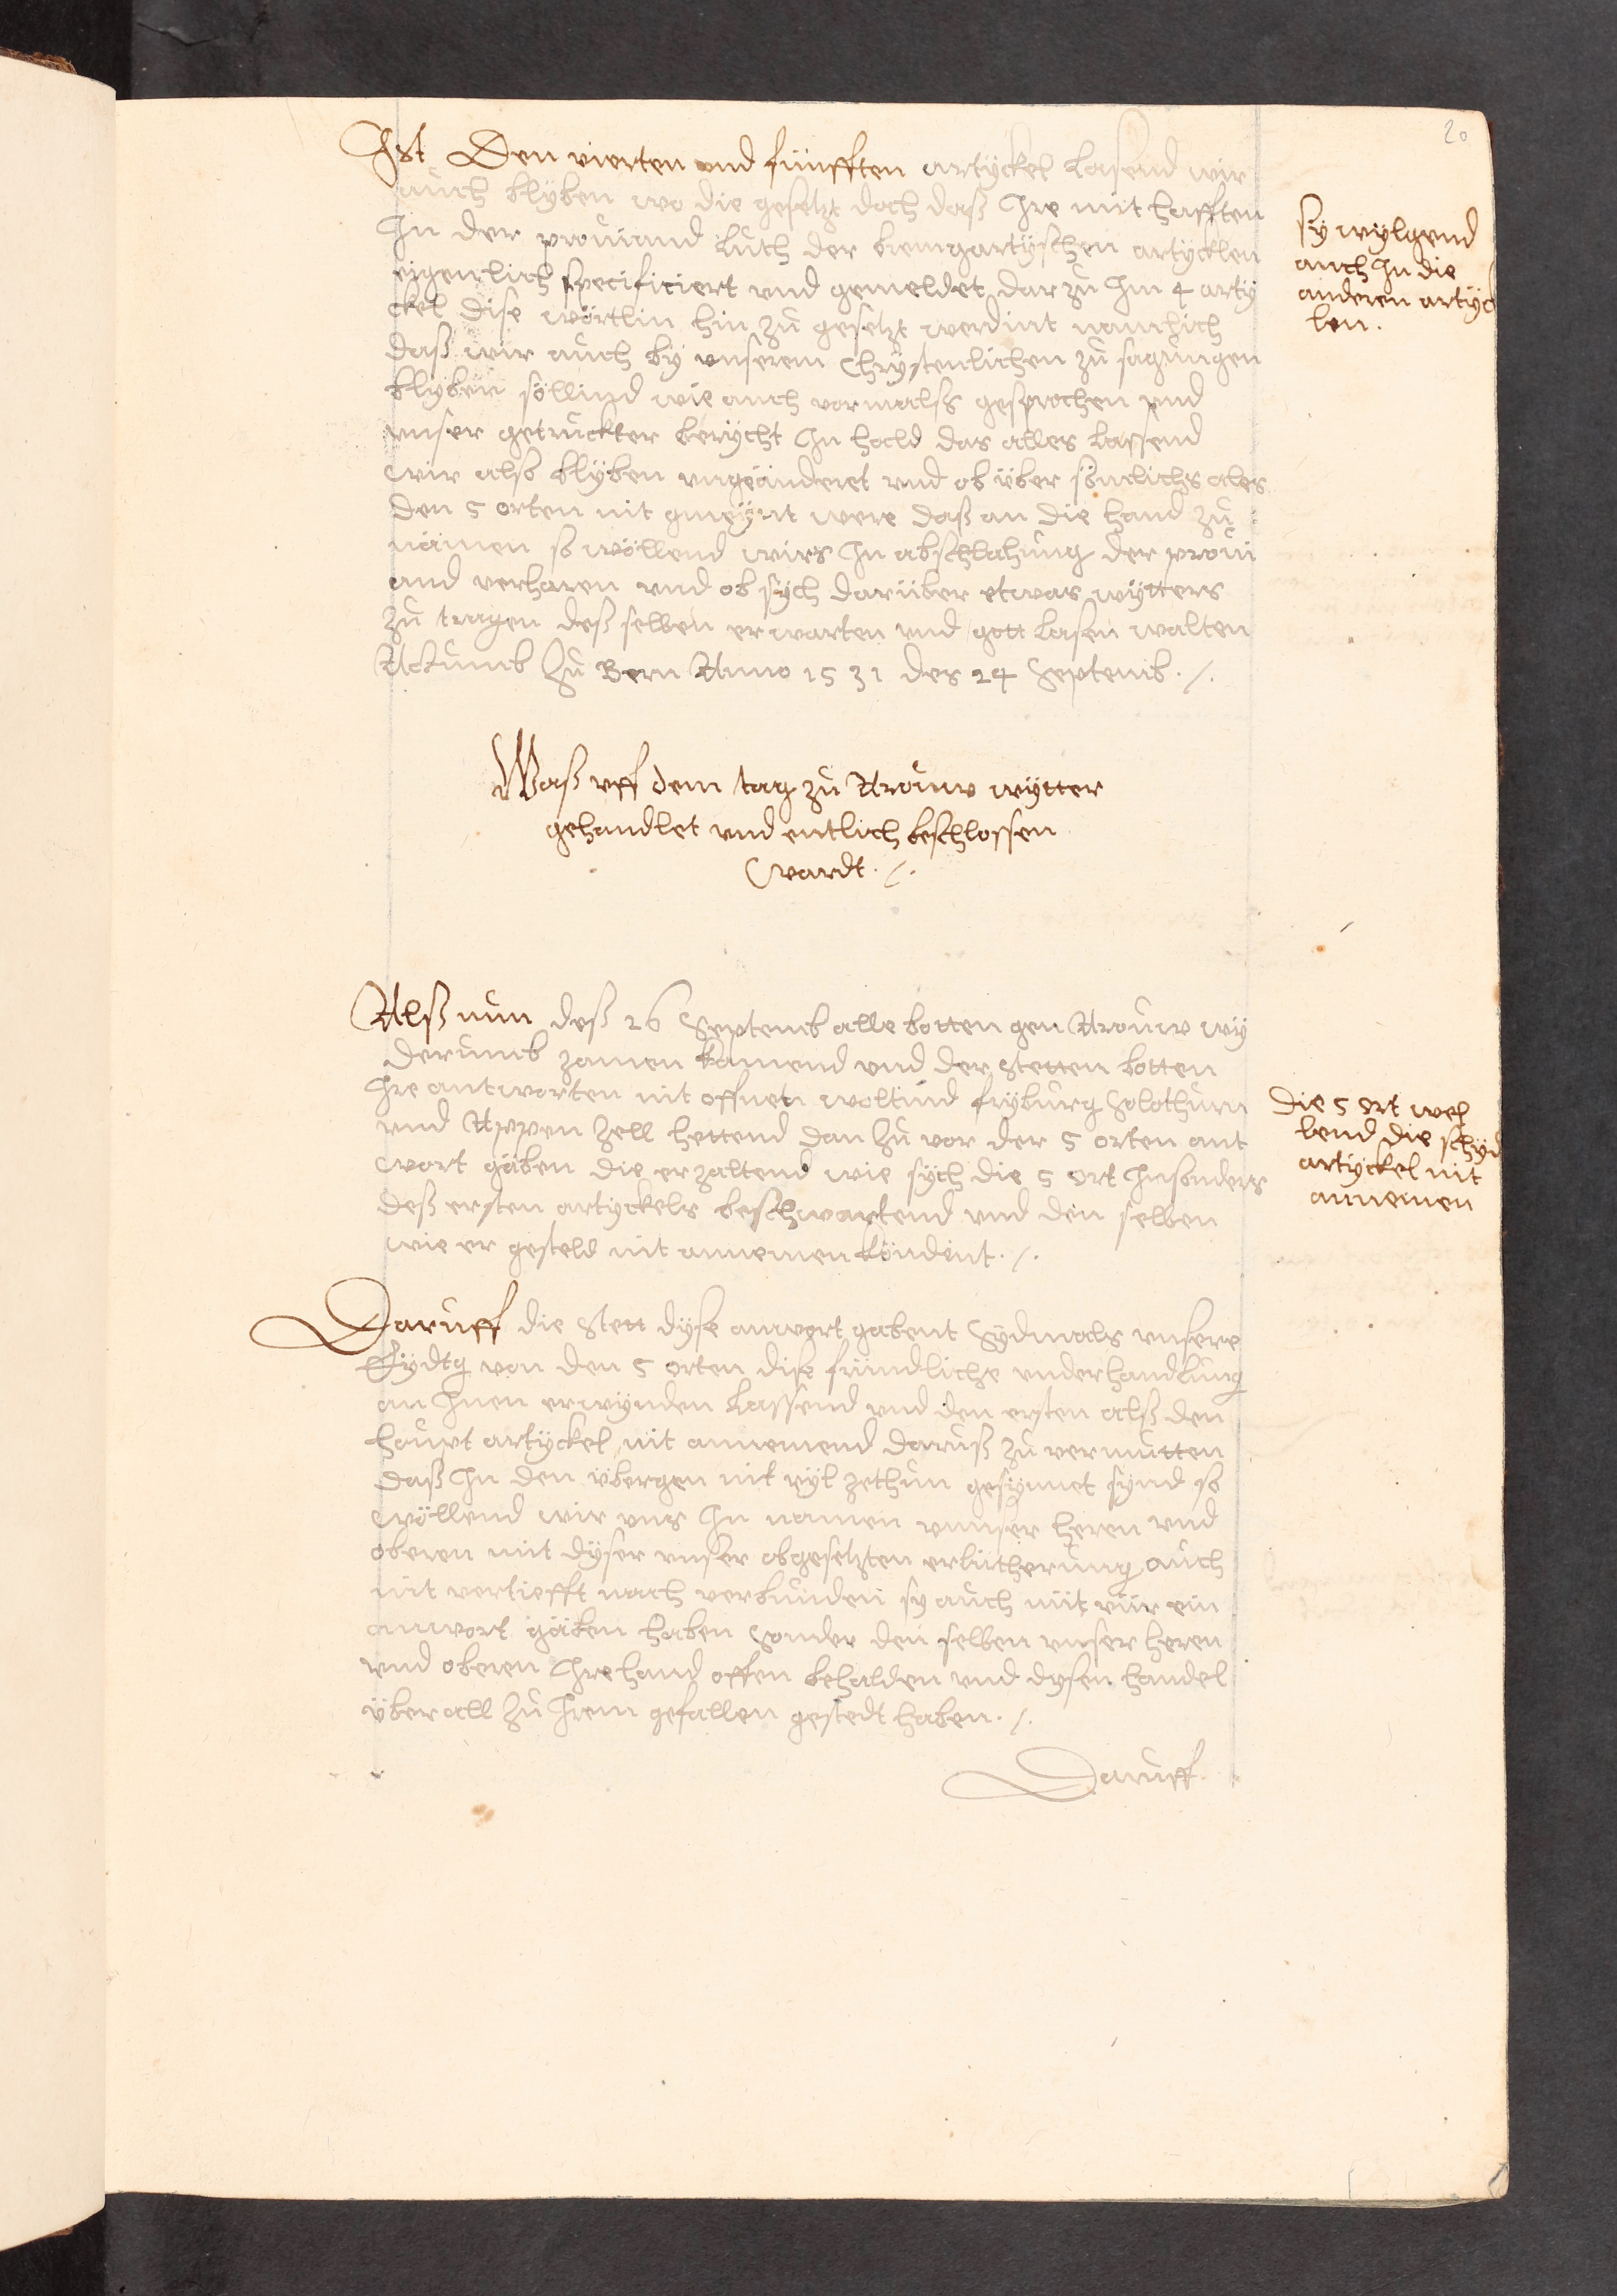 20
Ist Den vierten und fünfften artyckel lasend wir
auch blyben wo die gesetzt doch daß Ihre mit hafften
In der proviand luth der bremgartyschen artycklen
eigenlich specificiert und gemeldet dar zu Im 4 arty
ckel dise wörtlin hin zu gesetzt werdint namlich
daß wir auch by unserem Chrystenlichen zu sagungen
blyben söllind wie auch vormalß gesprochen und
unser getruckter berycht In hald das alles lassend
wir also blyben ungeänderet und ob über sömlichs ales
den 5 orten nit gmeynt were daß an die hand zu
nämen so wöllend wirs In abschlahung der provi
and verharen und ob sych darüber etwas wytters
zu tragen deß selben erwarten und gott lasen walten
Acktumb Zu Bern Anno 1531 des 24 Septemb. /.
sy wylgend
auch In die
anderen artyck
len.
Waß uff dem tag zu Arouw wytter
gehandlet und entlich beschlossen
wardt. /.
Alß nun deß 26 Septemb alle botten gen Arouw wy
derumb zamen kamend und der Stetten botten
Ihre antworten nit offnen woltind fryburg Solothurn
und Appen Zell hettend dan Zu vor der 5 orten ant
wort gäben die erzaltend wie sych die 5 ort Insonders
deß ersten artyckels beschwartend und den selben
wie er gesteld nit annemen köndint. /.
die 5 ort wel
lend die schyd
artyckel nit
annemen
Daruff die Stett dyse anwort gabent Sydmals unsere
Eydtg von den 5 orten dise fründliche underhandlung
an Inen erwynden lassend und den ersten alß den
houpt artyckel nit annemend daruß zu vermutten
daß In den übergen nit vyl zethun gesynnet synd so
wöllend wir uns In namen unnser heren und
oberen mit dyser unser obgesetzten erlütherung auch
nit vertiefft noch verbunden sy auch nüt vür ein
anwort gäben haben Sonder den selben unser heren
und oberen Ihre hand offen behalden und dysen handel
über all Zu Irem gefallen gestelt haben. /.
Daruff.